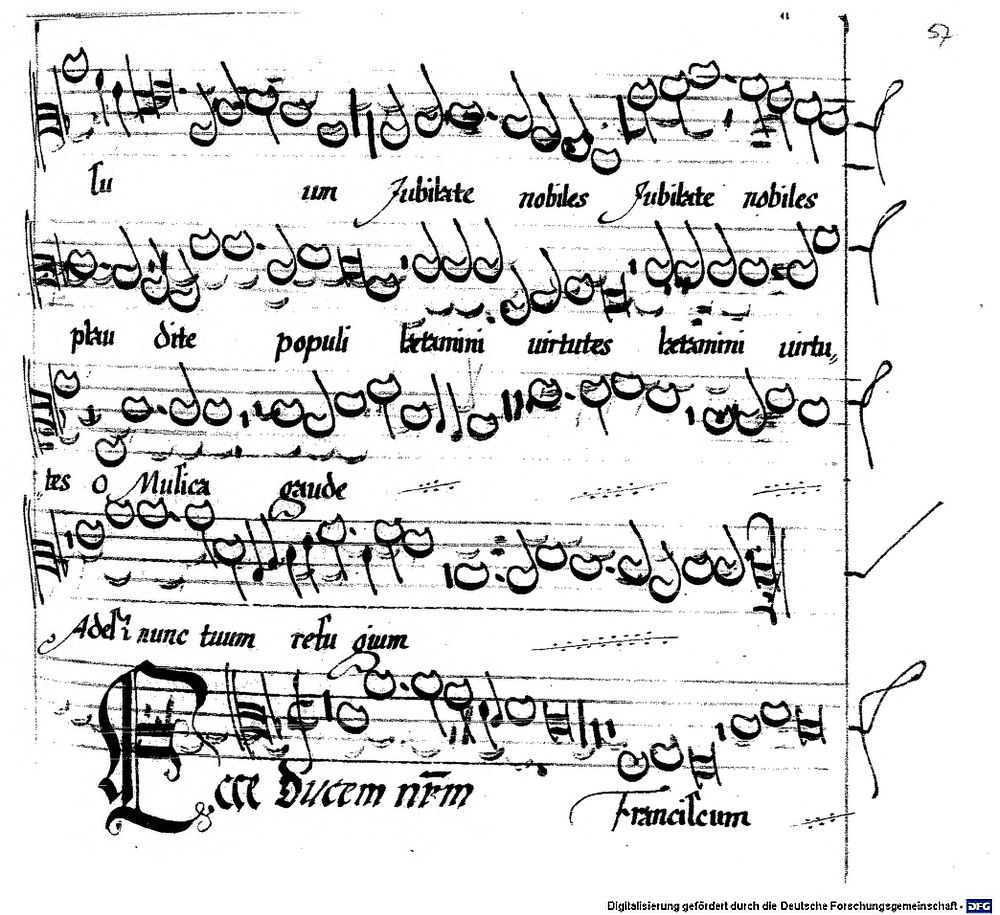 57
ſu um Jubilate nobiles Jubilate nobiles
plau dite populi lætamini uirtutes lætamini uirtu,,
tes O Muſica gaude
nunc tuum refu gium
Ecce Ducem nr̄m Franciſcum
Digitalisierung gefördert durch die Deutsche Forschungsgemeinschaft - DFG